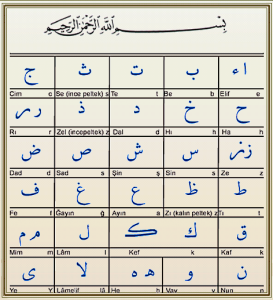 بِسْمِ اللَّهِ الرَّحْمَٰنِ الرَّحِيمِ
اء ب ت ث ج
Elif e Be b Te t Se (ince peltek) s Cim c
ح خ د ذ ر ر
Ha h Hı h Dal d Zel (incepeltek) z Rı r
ز ز س ش ص ض
Ze z Sin s Şin ş Sad s Dad d
ط ظ ع غ ف
Tı t Zı (kalın peltek) z Ayın a Ğayın ğ Fe f
ق ك ل م م
Kaf k Kef k Lâm l Mim m
ن و ه ه لا ى
Nun n Vav v He h Lâmelif lâ Ye Y